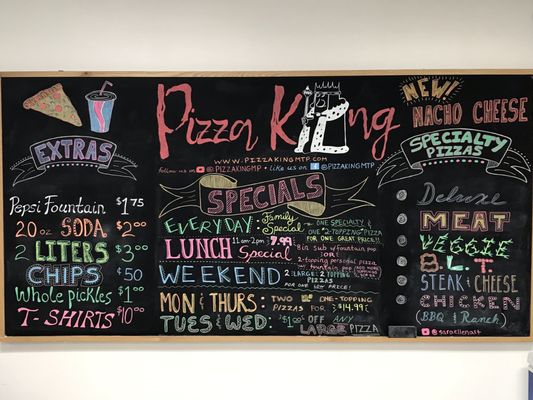 EXTRAS
Pepsi Fountain $1.75
20oz SODA $2.00
2 LITERS $3.00
CHIPS $.50
Whole pickles $1.00
T-SHIRTS $10.00
Pizza King
WWW.PIZZAKINGMP.COM
follow us @PIZZAKINGMP • like us on @PIZZAKINGMTP
SPECIALS
EVERYDAY • Family Special • ONE SPECIALTY & ONE 2-TOPPING PIZZA FOR ONE GREAT PRICE!!
LUNCH Special 11am-2pm $7.99
8in sub w/ fountain pop
(or)
2-topping personal pizza w/ fountain pop
WEEKEND 2 LARGE 2-TOPPING PIZZAS
FOR ONE LOW PRICE!
MON & THURS: TWO ONE-TOPPING PIZZAS FOR $14.99
TUES & WED: $1.00 OFF ANY LARGE PIZZA
NEW
NACHO CHEESE
SPECIALTY
PIZZAS
Deluxe
MEAT
VEGGIE
B.L.T.
STEAK & CHEESE
CHICKEN
(BBQ & Ranch)
@saraellenart